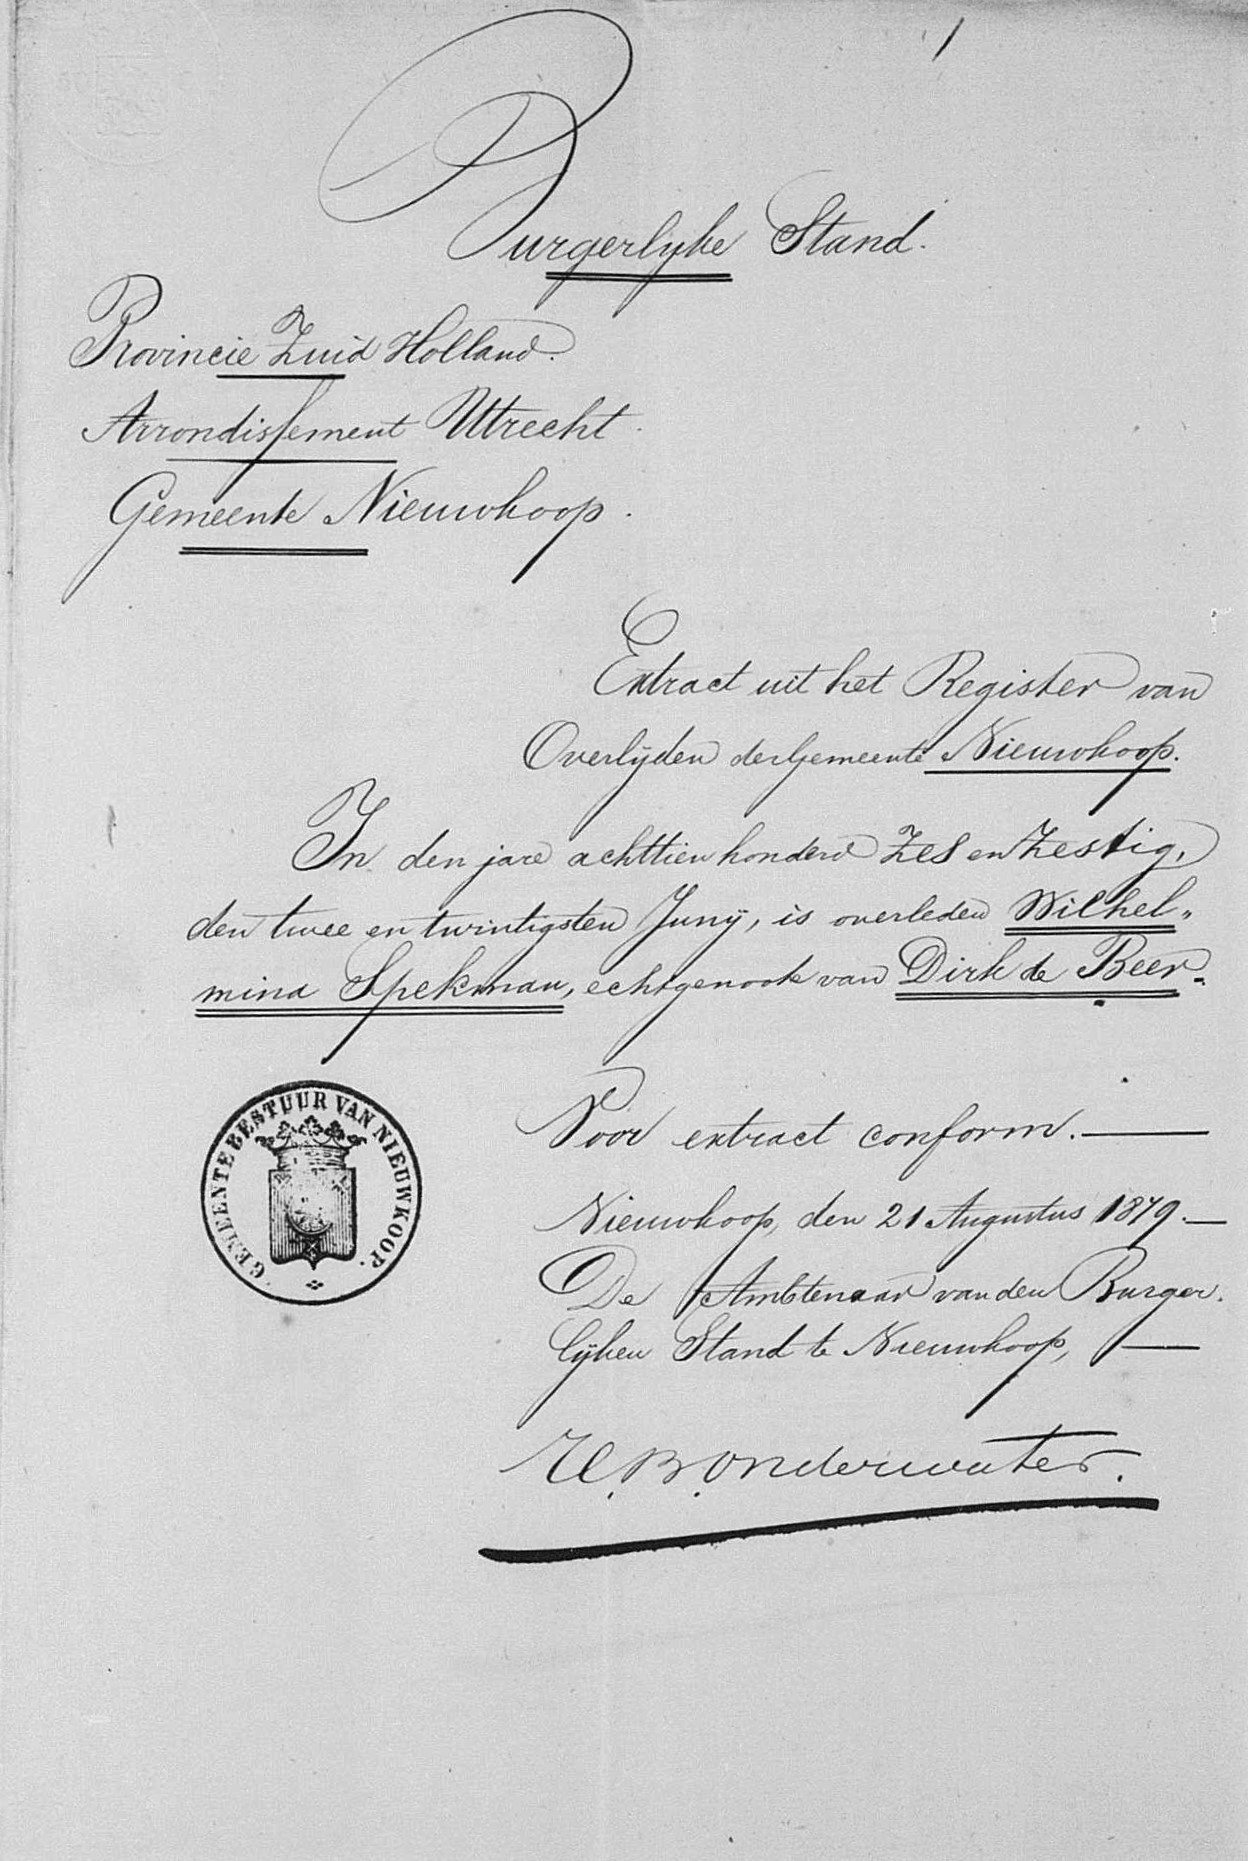 Burgerlyke Stand.
Provincie Zuid Holland.
Arrondissement Utrecht.
Gemeente Nieuwkoop.
Extract uit het Register van
Overlijden der Gemeente Nieuwkoop.
In den jare achttien honderd Zes en Zestig,
den twee en twintigsten Junij, is overleden Wilhel„
mina Spekman, echtgenoote van Dirk de Beer.
GEMEENTEBESTUUR VAN NIEUWKOOP.
Voor extract conform.
Nieuwkoop, den 21 Augustus 1879.
De Ambtenaar van den Burger.
lijken Stand te Nieuwkoop,
B. Onderwater.